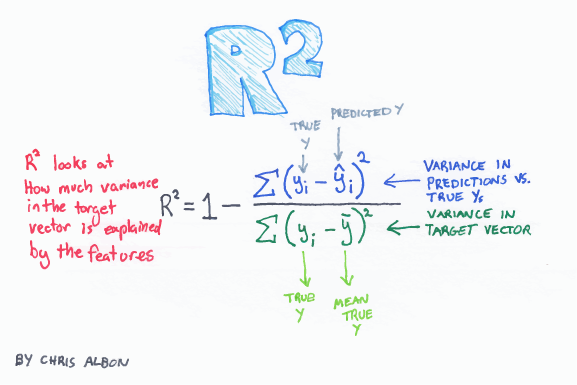 R²
TRUE
Y
PREDICTED Y
R² looks at
How much variance
in the target
vector is explained
by the features
R² = 1 - Σ(yᵢ - ŷᵢ)² / Σ(yᵢ - ȳ)²
VARIANCE IN
PREDICTIONS VS.
TRUE Ys
VARIANCE IN
TARGET VECTOR
TRUE
Y
MEAN
TRUE
Y
BY CHRIS ALBON